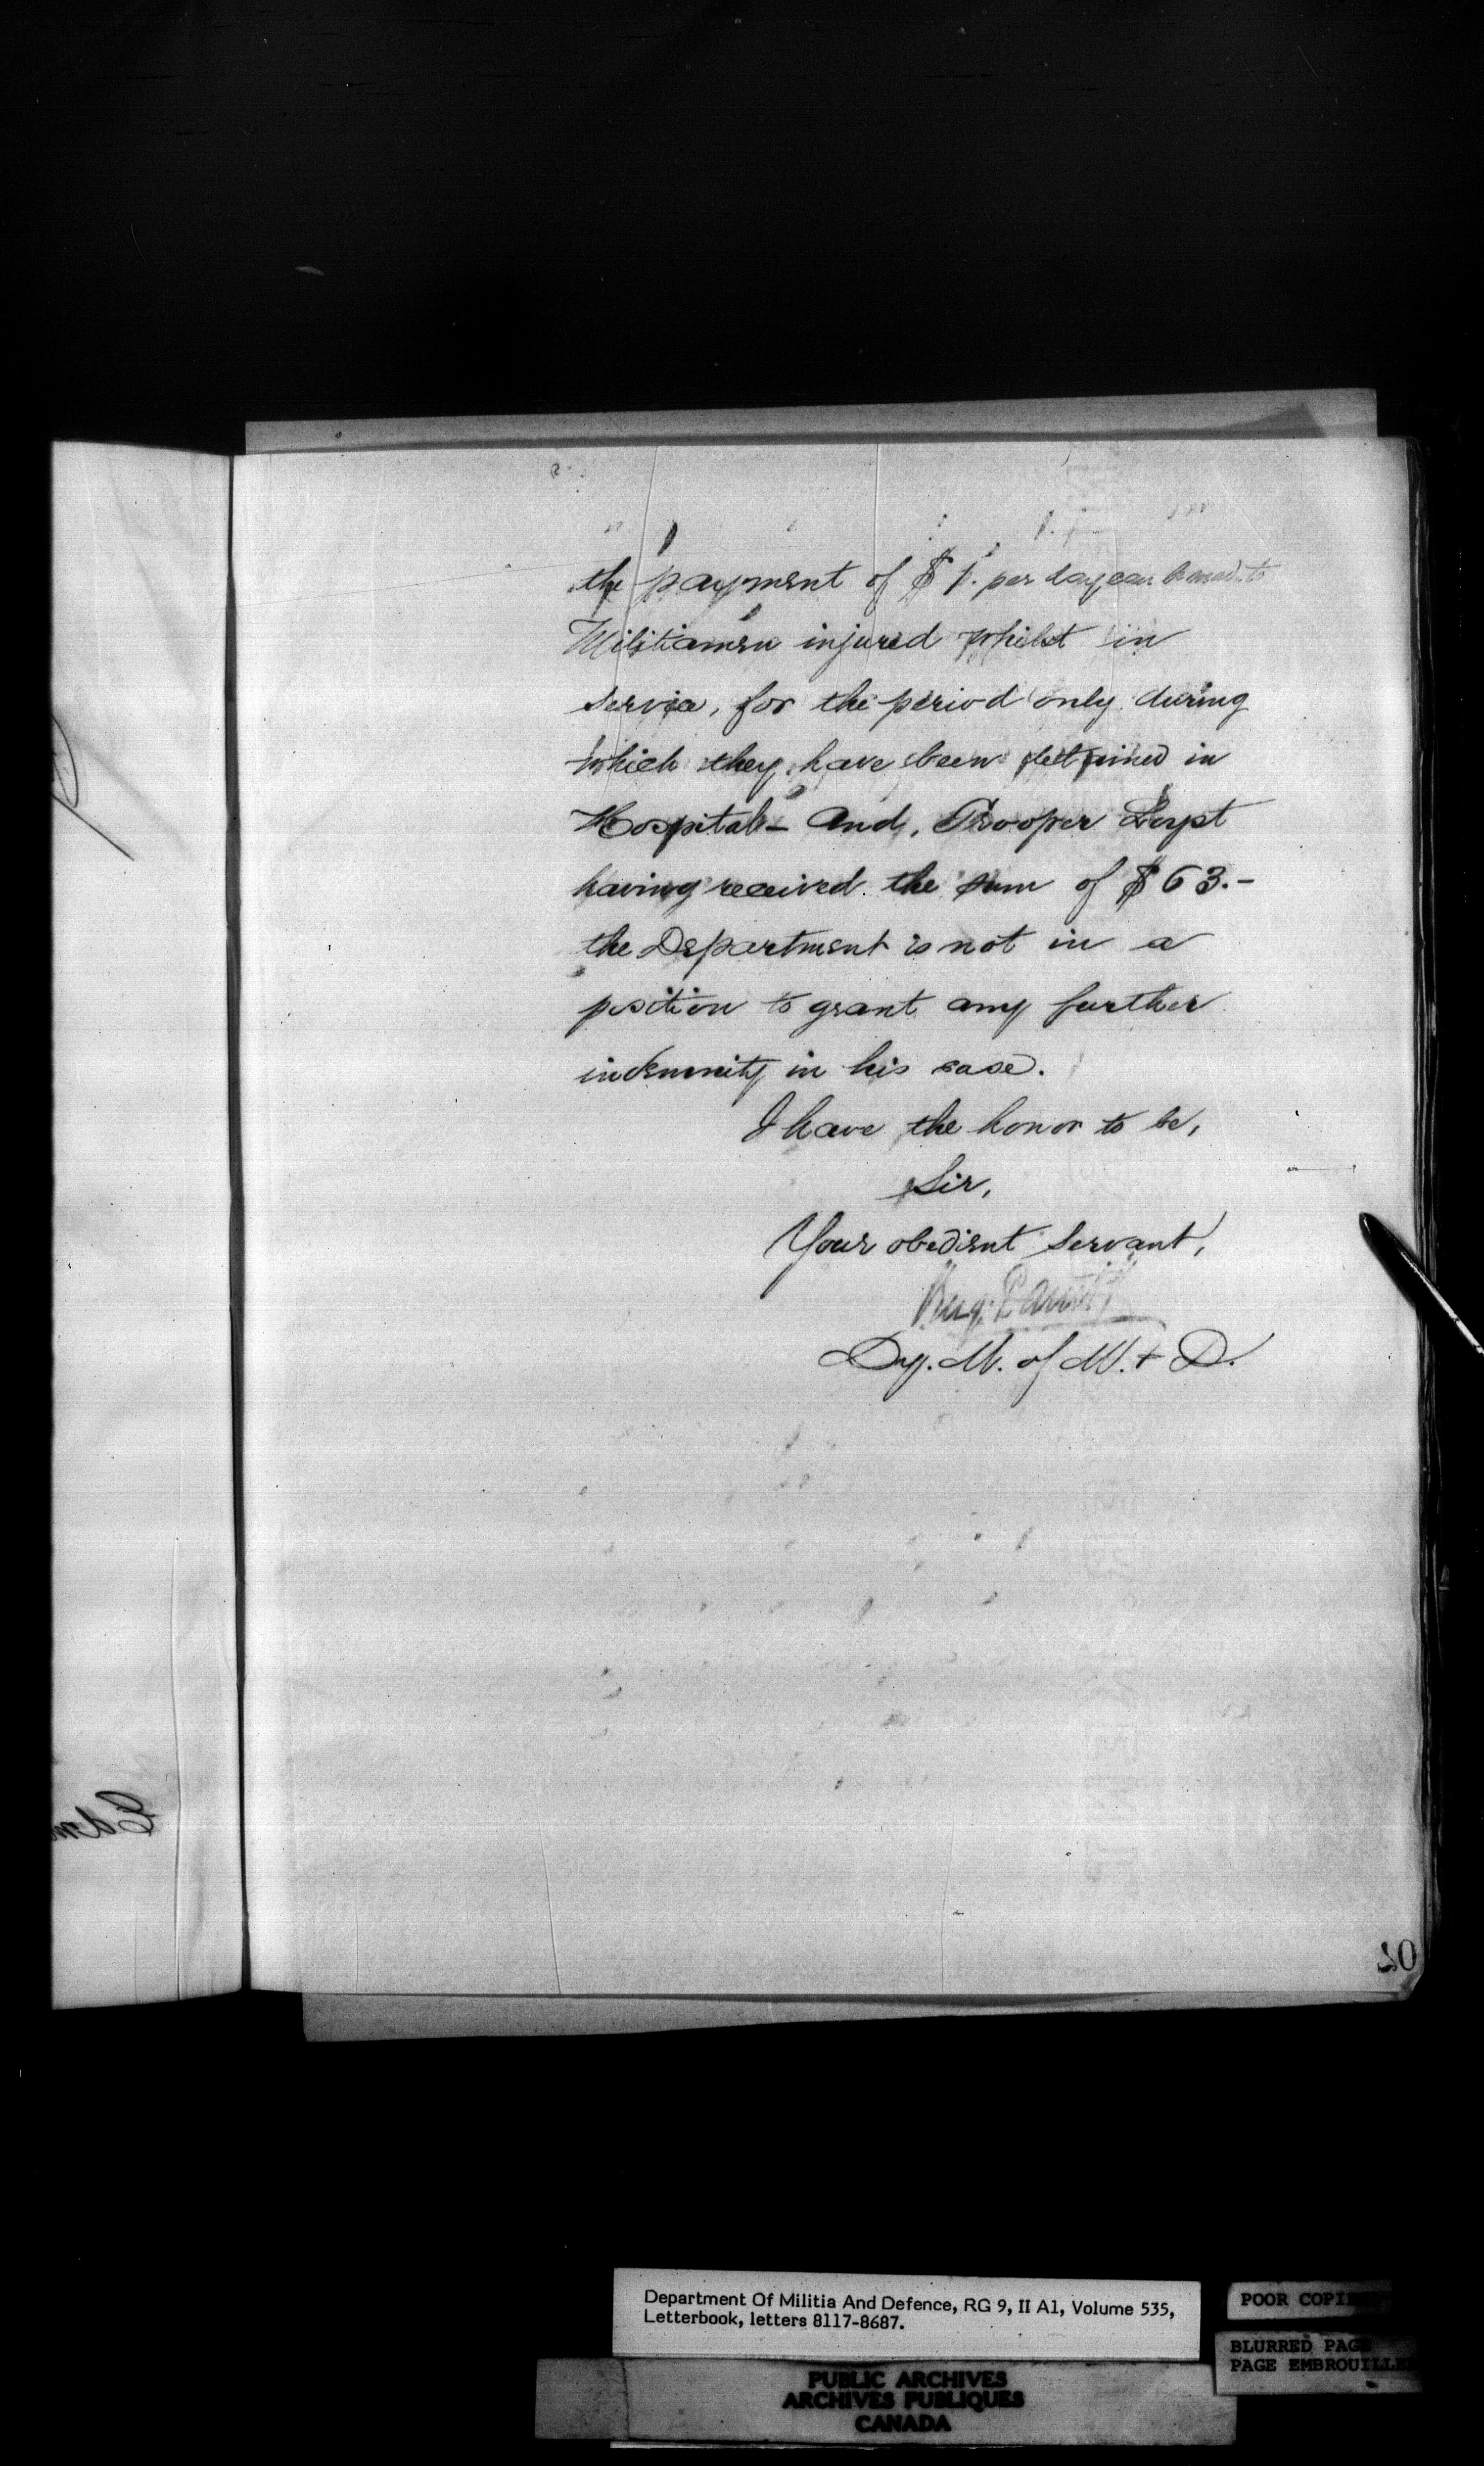 the payment of $1. per day can be made to
Militiamen injured whilst in
service, for the period only during
which they have been detained in
Hospital - and, Trooper
having received the sum of $63.-
the Department is not in a
position to grant any further
indemnity in his case.
I have the honor to be,
Sir,
Your obedient servant,
Dy. M. of M. + D.
Department Of Militia And Defence, RG 9, II A1, Volume 535,
Letterbook, letters 8117-8687.
POOR COPI
BLURRED PAGE
PAGE EMBROUILLE
PUBLIC ARCHIVES
ARCHIVES PUBLIQUES
CANADA